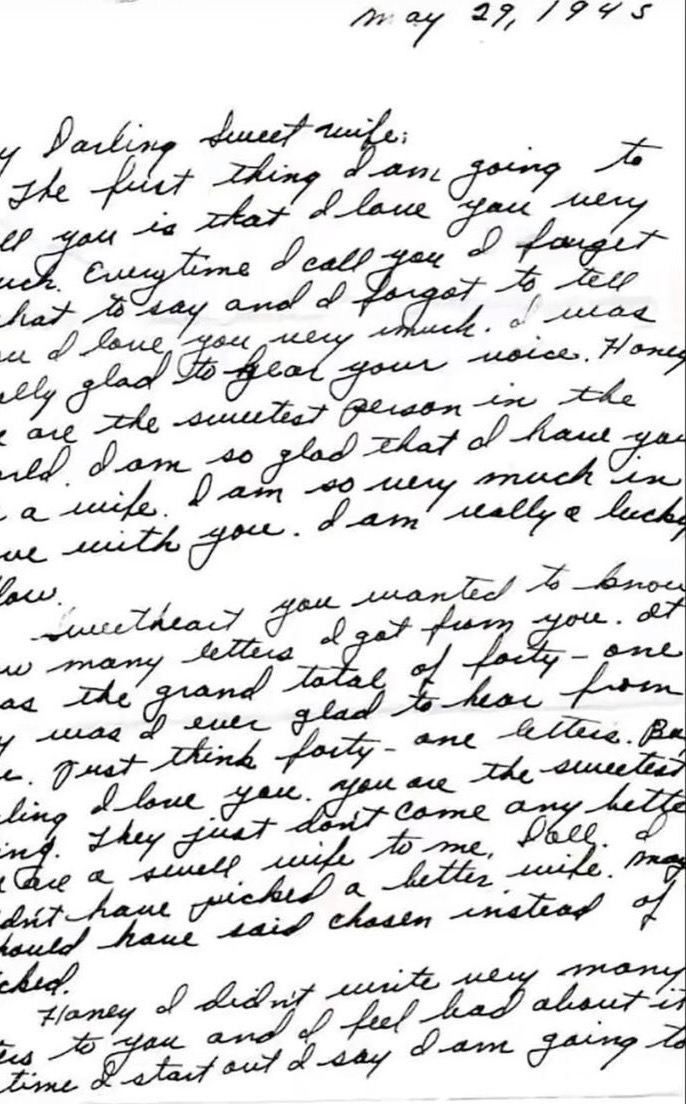 May 29, 1945
y Darling Sweet wife:
The first thing I am going to
ll you is that I love you very
uch. Everytime I call you I forget
hat to say and I forgot to tell
u I love you very much. I was
ally glad to hear your voice. Honey
are the sweetest person in the
orld. I am so glad that I have you
a wife. I am so very much in
ve with you. I am really a lucky
low.
Sweetheart you wanted to know
w many letters I got from you. It
as the grand total of forty-one
y was I ever glad to hear from
Just think forty-one letters. Ba
ling I love you. You are the sweetest
ing. They just don't come any bette
are a swell wife to me, Doll. I
dn't have picked a better wife. May
hould have said chosen instead of
cked.
Honey I didn't write very many
ers to you and I feel bad about it
time I start out I say I am going to